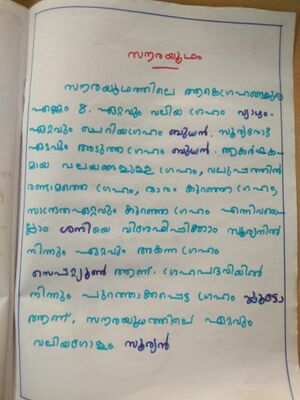 സൗരയൂഥം
സൗരയൂഥത്തിലെ ആകെഗ്രഹങ്ങളുടെ
എണ്ണം 8. ഏറ്റവും വലിയ ഗ്രഹം വ്യാഴം.
ഏറ്റവും ചെറിയഗ്രഹം ബുധൻ. സൂര്യനോട്
ഏറ്റവും അടുത്ത ഗ്രഹം ബുധൻ. ആകർഷക-
മായ വലയങ്ങളുള്ള ഗ്രഹം, വലുപ്പത്തിൽ
രണ്ടാമത്തെ ഗ്രഹം, ഭാരം കുറഞ്ഞ ഗ്രഹം,
സാന്ദ്രതഏറ്റവും കുറഞ്ഞ ഗ്രഹം എന്നിങ്ങനെ
ശനിയെ വിശേഷിപ്പിക്കാം സൂര്യനിൽ
നിന്നും ഏറ്റവും അകന്ന ഗ്രഹം
നെപ്റ്റ്യൂൺ ആണ്. ഗ്രഹപദവിയിൽ
നിന്നും പുറത്താക്കപ്പെട്ട ഗ്രഹം പ്ലൂട്ടോ
ആണ്. സൗരയൂഥത്തിലെ ഏറ്റവും
വലിയഗോളം സൂര്യൻ